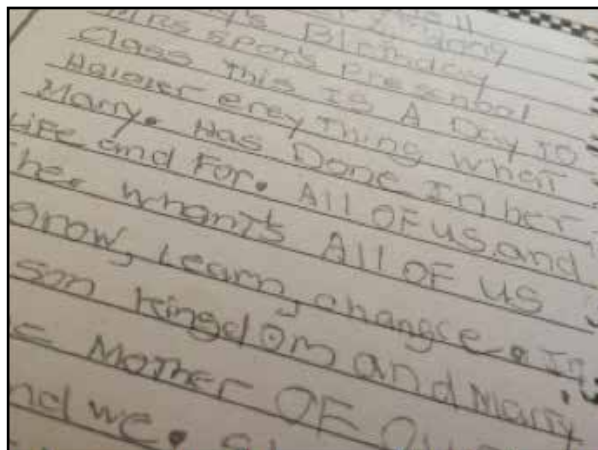 Birthday
MRS spots Preschool
Class This IS A Day TO
Haloier ereything what
Marry. Has Done In her
Life and For. All OF us, and
her whants All OF us
grow, Learn, changce. In
son kingdom and Marry
Mother OF
nd we.